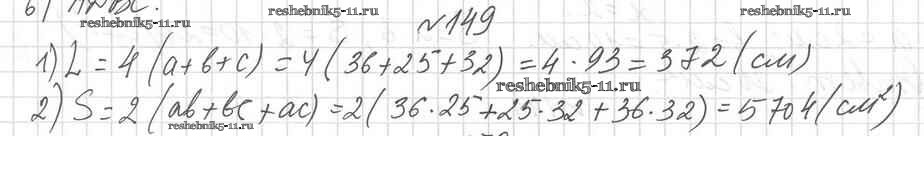 reshebnik5-11.ru
reshebnik5-11.ru
№149
1) L = 4 (a+b+c) = 4 (36+25+32) = 4 · 93 = 372 (см)
reshebnik5-11.ru
2) S = 2 (ab+bc+ac) = 2 (36·25+25·32+36·32) = 5704 (см²)
reshebnik5-11.ru